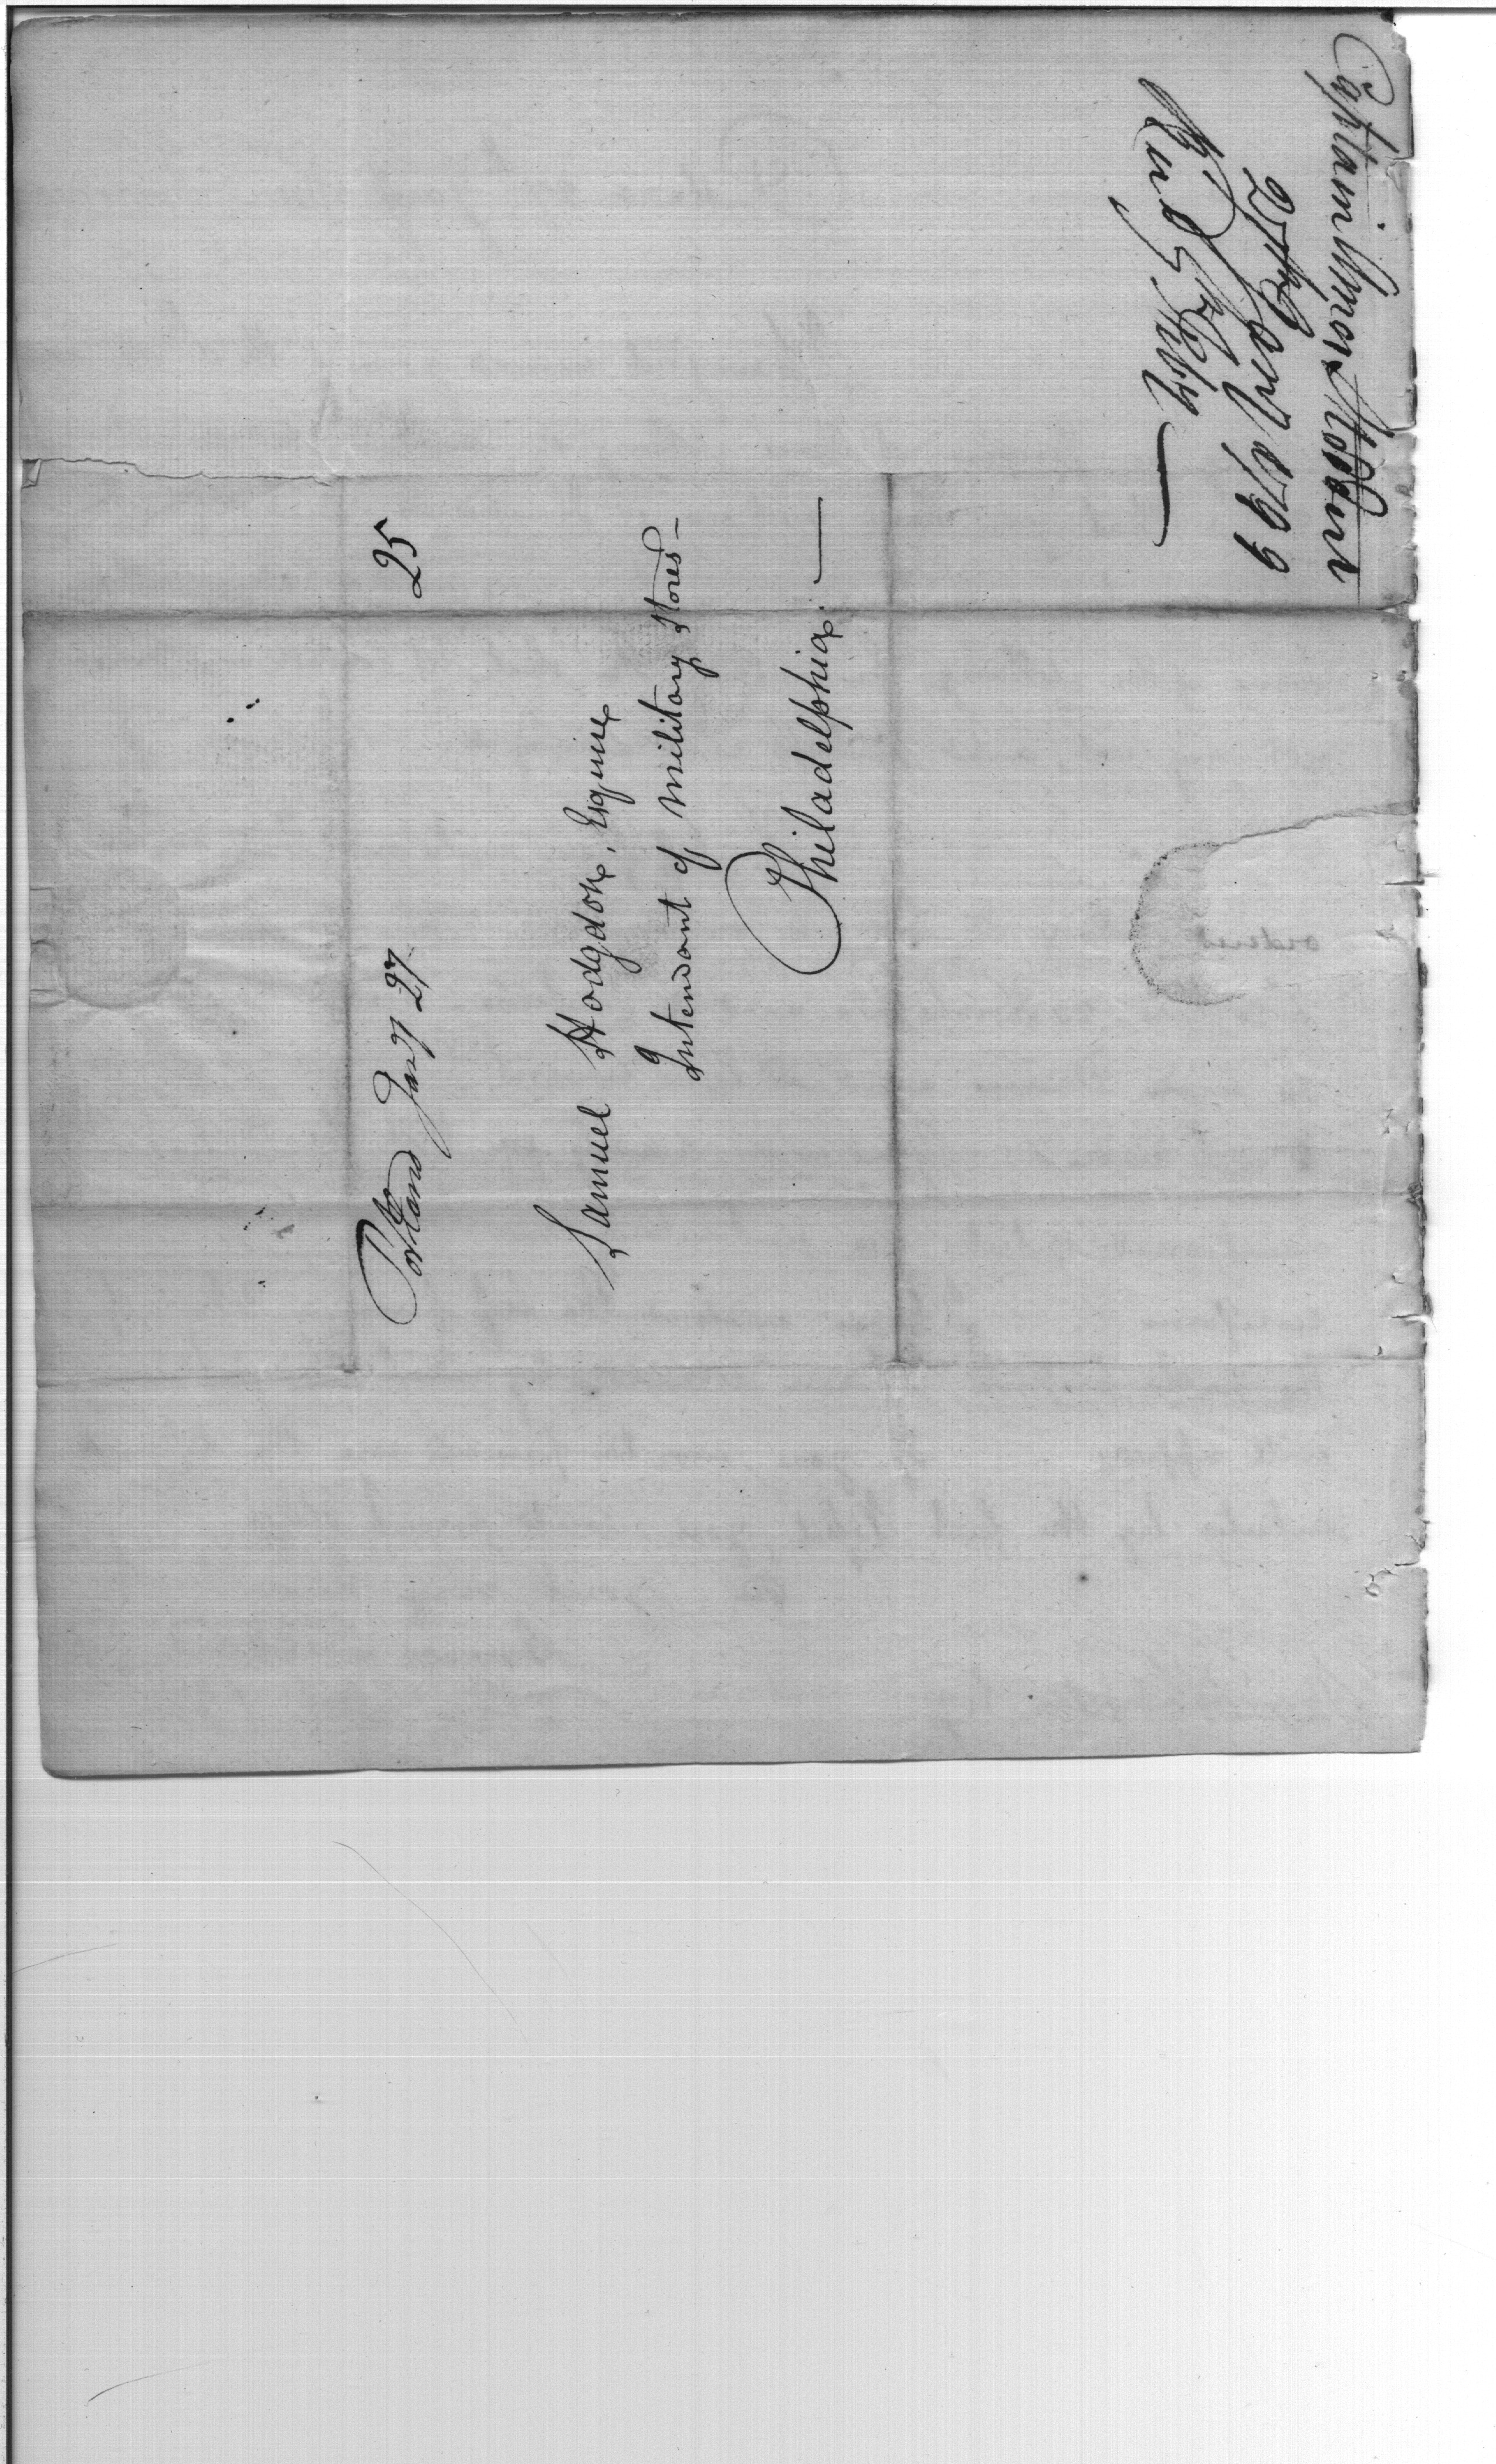 Portland Jany 27
25
Samuel Hodgdon, Esquire
Intendant of Military Stores -
Philadelphia. —
Captain Amos Stoddard
27th Jany 1799